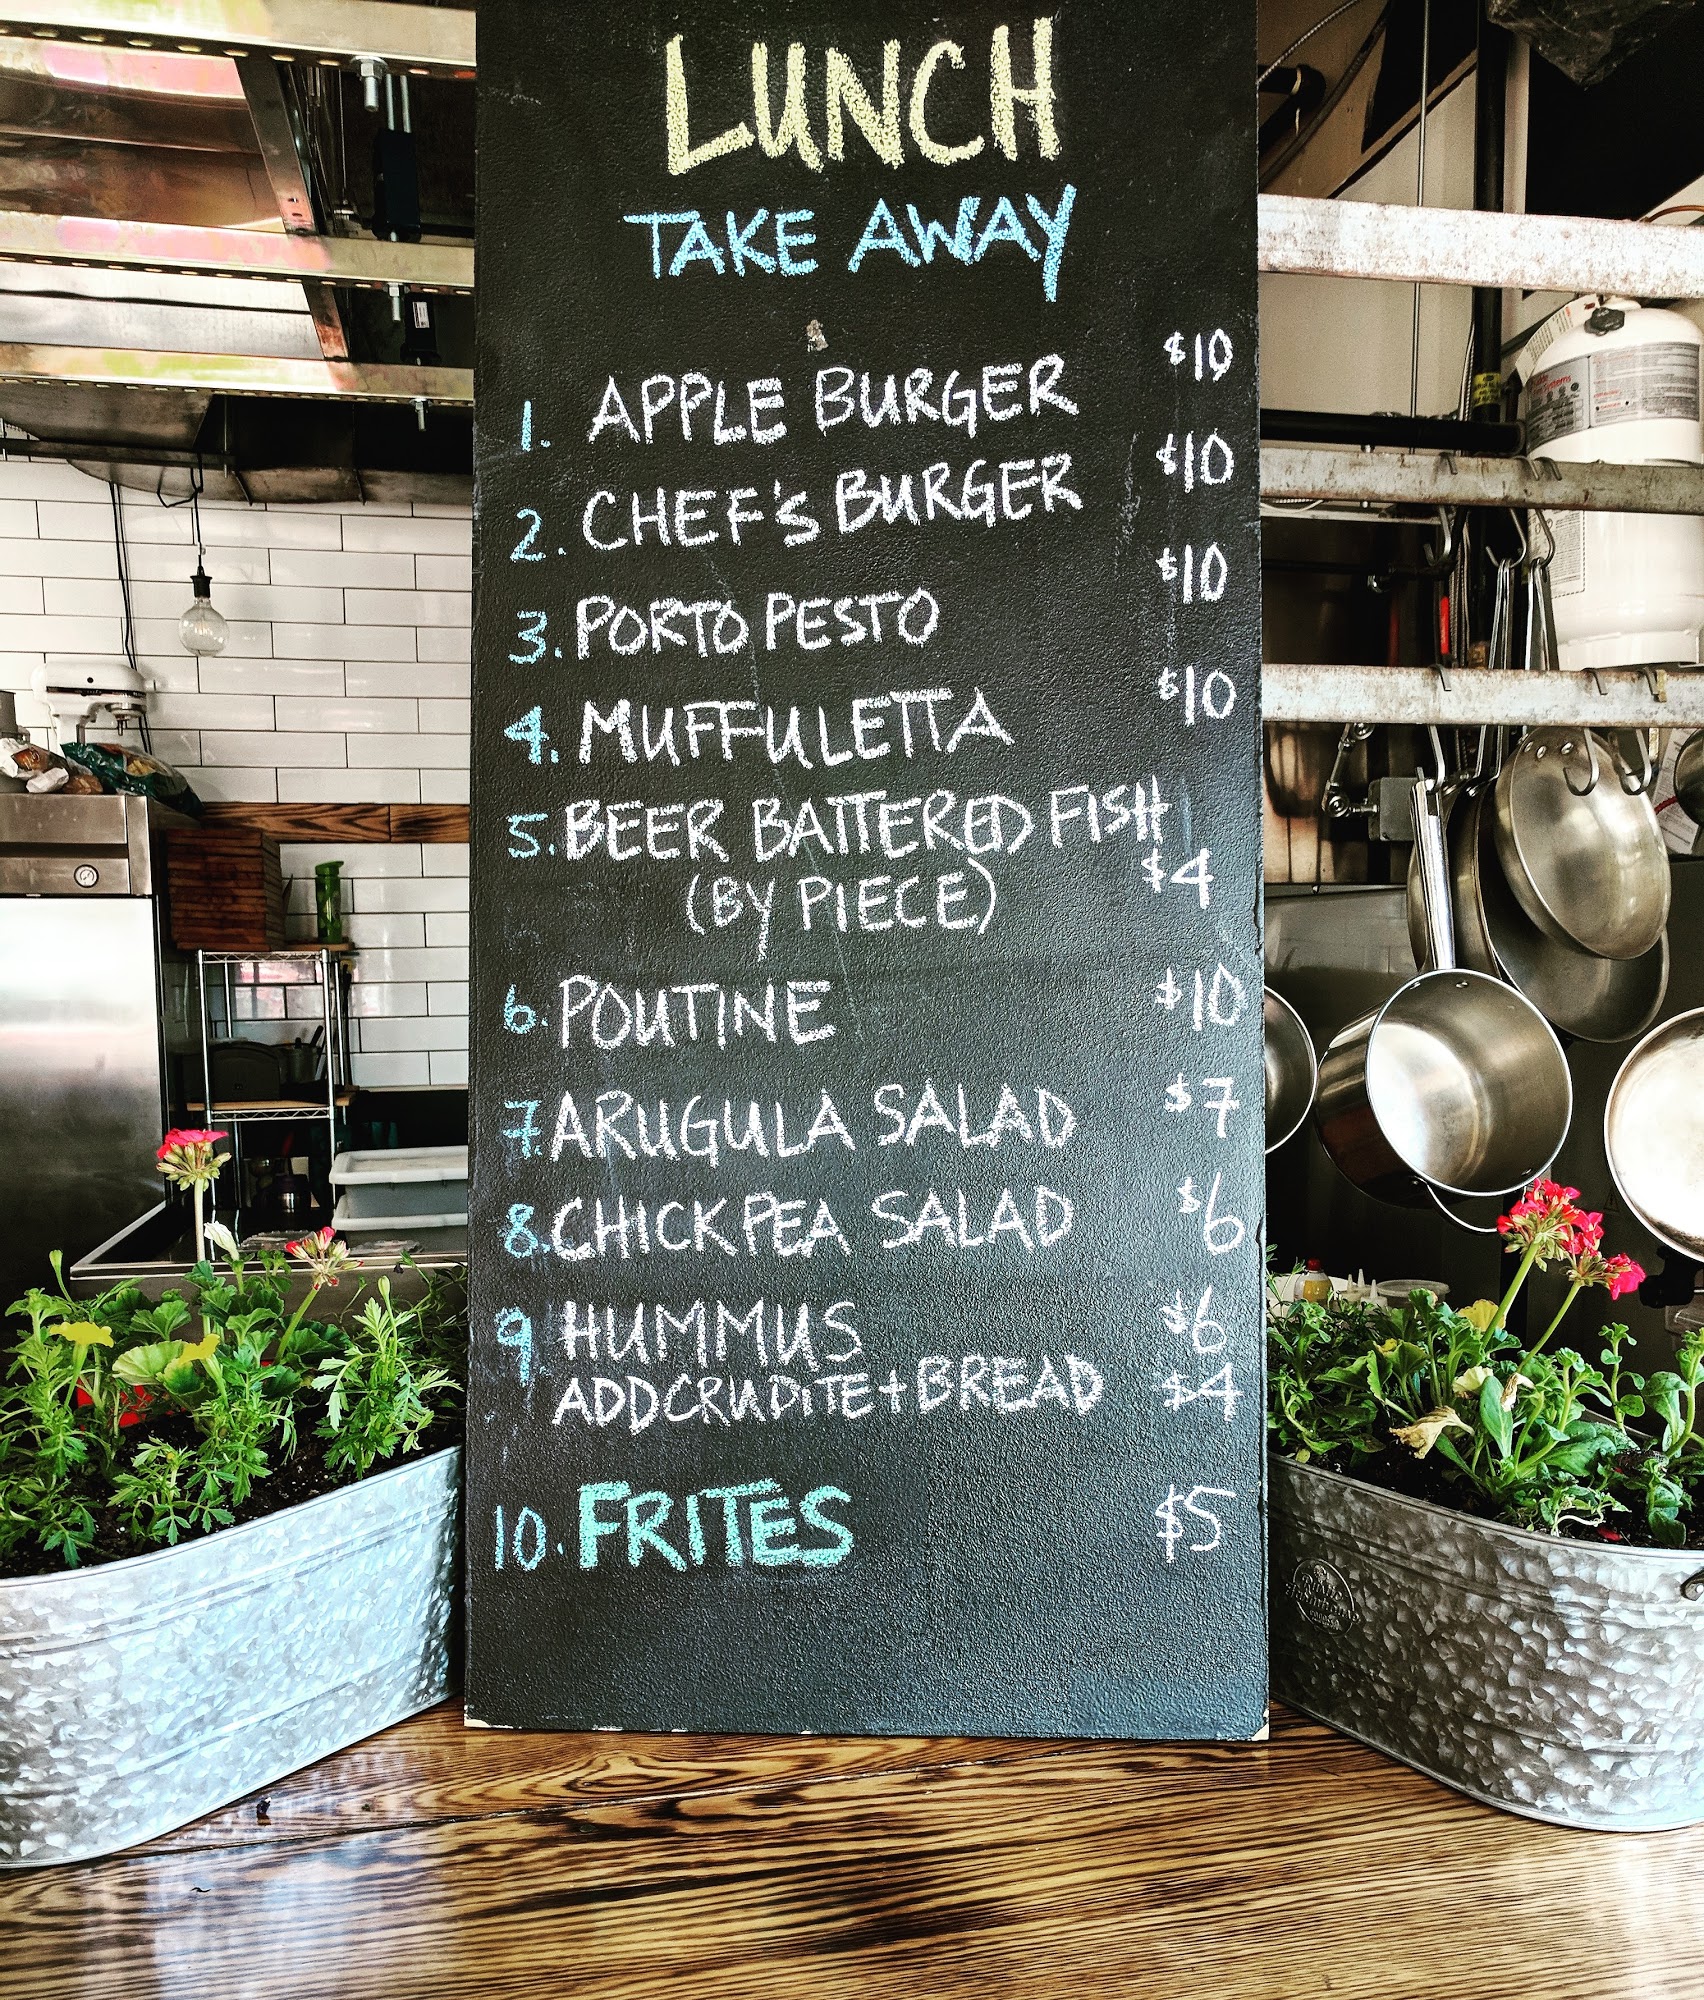 LUNCH
TAKE AWAY
1. APPLE BURGER $10
2. CHEF'S BURGER $10
3. PORTO PESTO $10
4. MUFFULETTA $10
5. BEER BATTERED FISH
(BY PIECE) $4
6. POUTINE $10
7. ARUGULA SALAD $7
8. CHICKPEA SALAD $6
9. HUMMUS $6
ADD CRUDITE + BREAD $4
10. FRITES $5